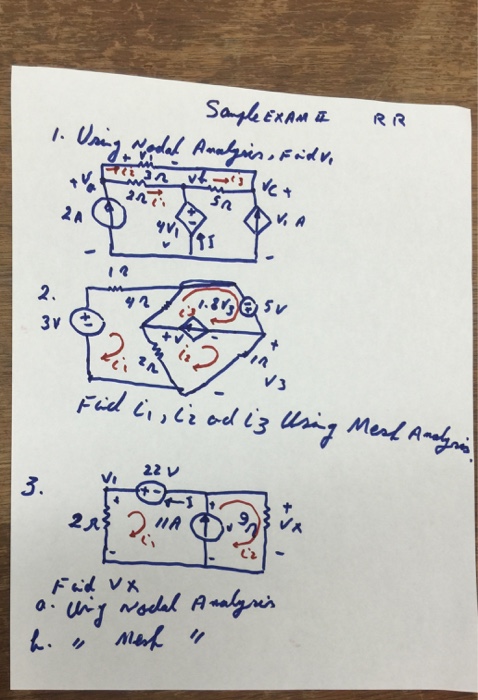 Sample EXAM II RR
1. Using Nodal Analysis, Find V1
+ V1 -
i2 3Ω Vb i3
+Va 2Ω i1 5Ω VC +
2A 4V1 V I V1 A
- -
2. 1Ω
4Ω i3 1.8V3 5V
3V + V - +
i1 2Ω i2 1Ω
- V3
Find i1, i2 ad i3 Using Mesh Analysis.
3. V1 22V
+ + - I + +
2Ω i1 11A V 9Ω i2 VX
- - -
Find VX
a. Using Nodal Analysis
b. " Mesh "